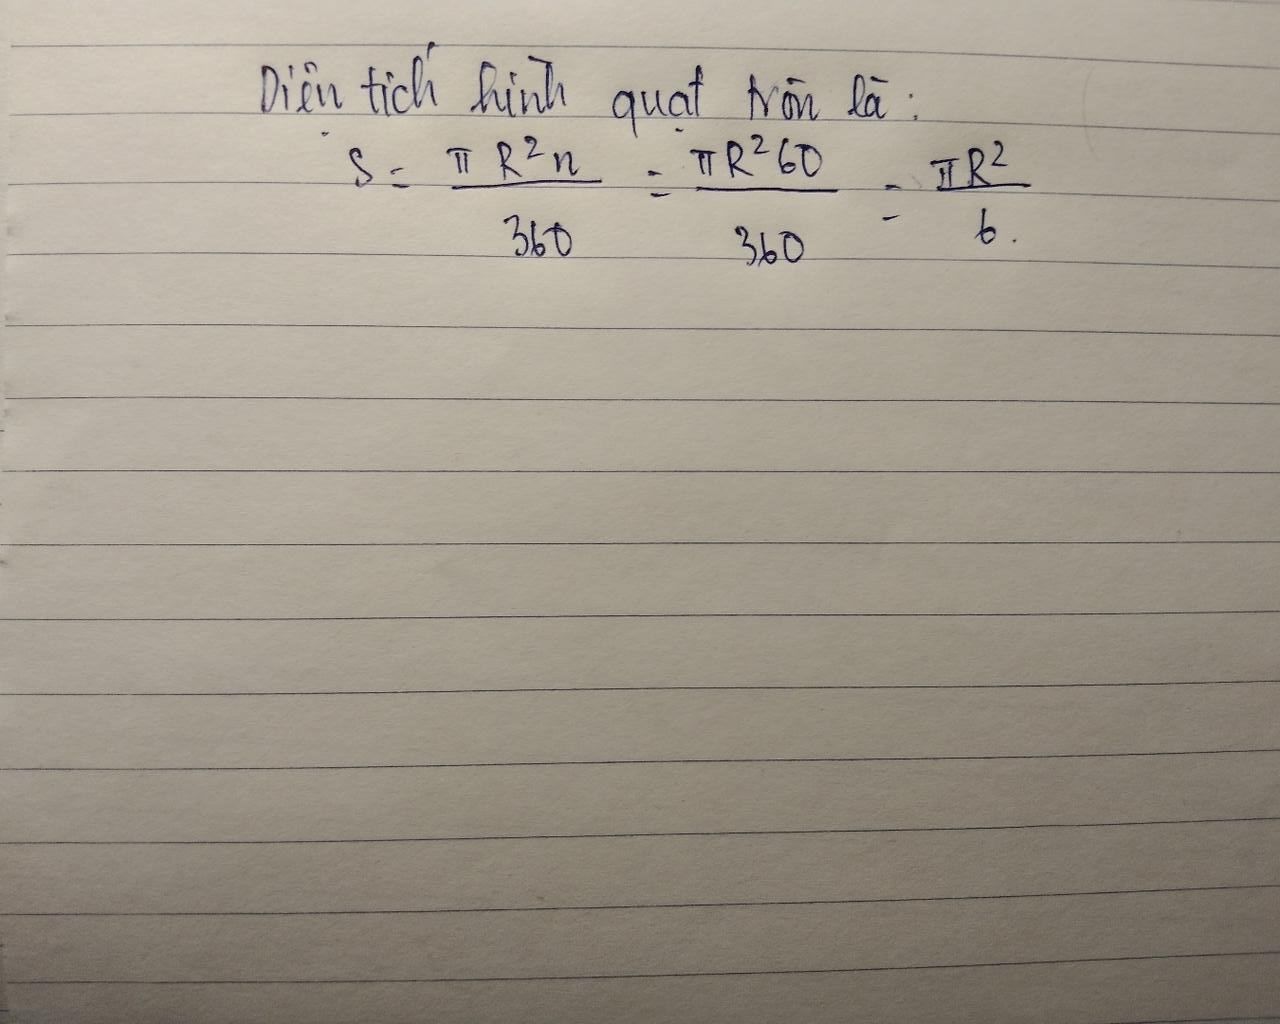 Diện tích hình quạt tròn là:
S = πR²n/360 = πR²60/360 = πR²/6.